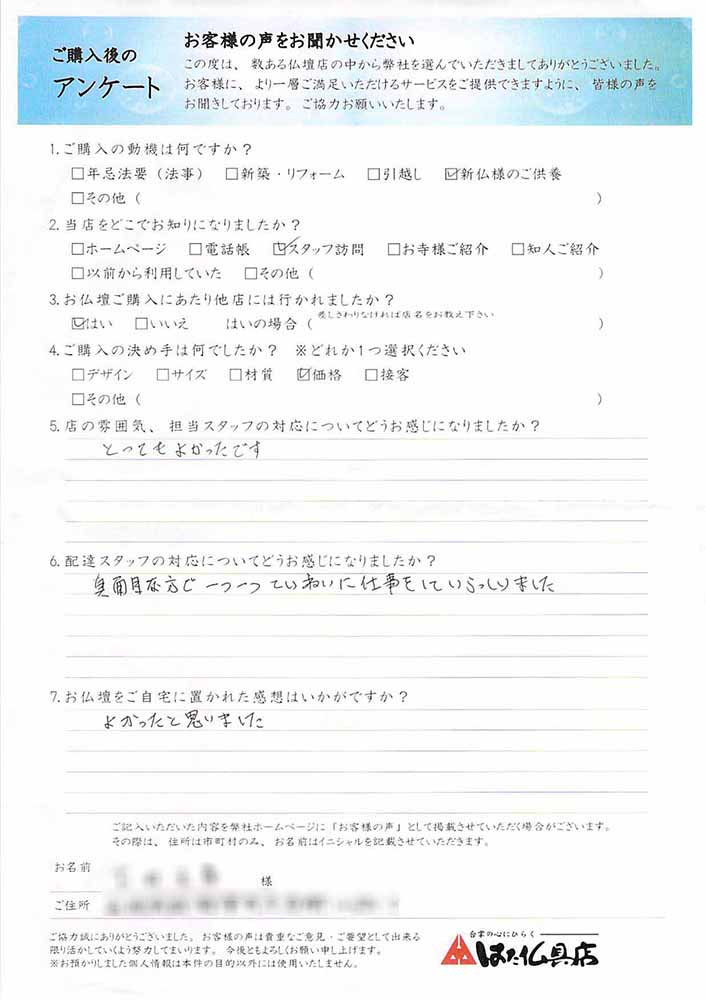 ご購入後の
アンケート
お客様の声をお聞かせください
この度は、数ある仏壇店の中から弊社を選んでいただきましてありがとうございました。
お客様に、より一層ご満足いただけるサービスをご提供できますように、皆様の声を
お聞きしております。ご協力お願いいたします。
1.ご購入の動機は何ですか？
□年忌法要（法事） □新築・リフォーム □引越し ☑新仏様のご供養
□その他（ ）
2.当店をどこでお知りになりましたか？
□ホームページ □電話帳 ☑スタッフ訪問 □お寺様ご紹介 □知人ご紹介
□以前から利用していた □その他（ ）
3.お仏壇ご購入にあたり他店には行かれましたか？
☑はい □いいえ はいの場合（差しさわりなければ店名をお教え下さい ）
4.ご購入の決め手は何でしたか？ ※どれか1つ選択ください
□デザイン □サイズ □材質 ☑価格 □接客
□その他（ ）
5.店の雰囲気、担当スタッフの対応についてどうお感じになりましたか？
とってもよかったです
6.配達スタッフの対応についてどうお感じになりましたか？
真面目な方で一つ一つていねいに仕事をしていらっしゃいました
7.お仏壇をご自宅に置かれた感想はいかがですか？
よかったと思いました
ご記入いただいた内容を弊社ホームページに「お客様の声」として掲載させていただく場合がございます。
その際は、住所は市町村のみ、お名前はイニシャルを記載させていただきます。
お名前 様
ご住所
ご協力誠にありがとうございました。お客様の声は貴重なご意見・ご要望として出来る
限り活かしていくよう努力してまいります。今後ともよろしくお願い申し上げます。
※お預かりしました個人情報は本件の目的以外には使用いたしません。
合掌の心にひらく
はた仏具店